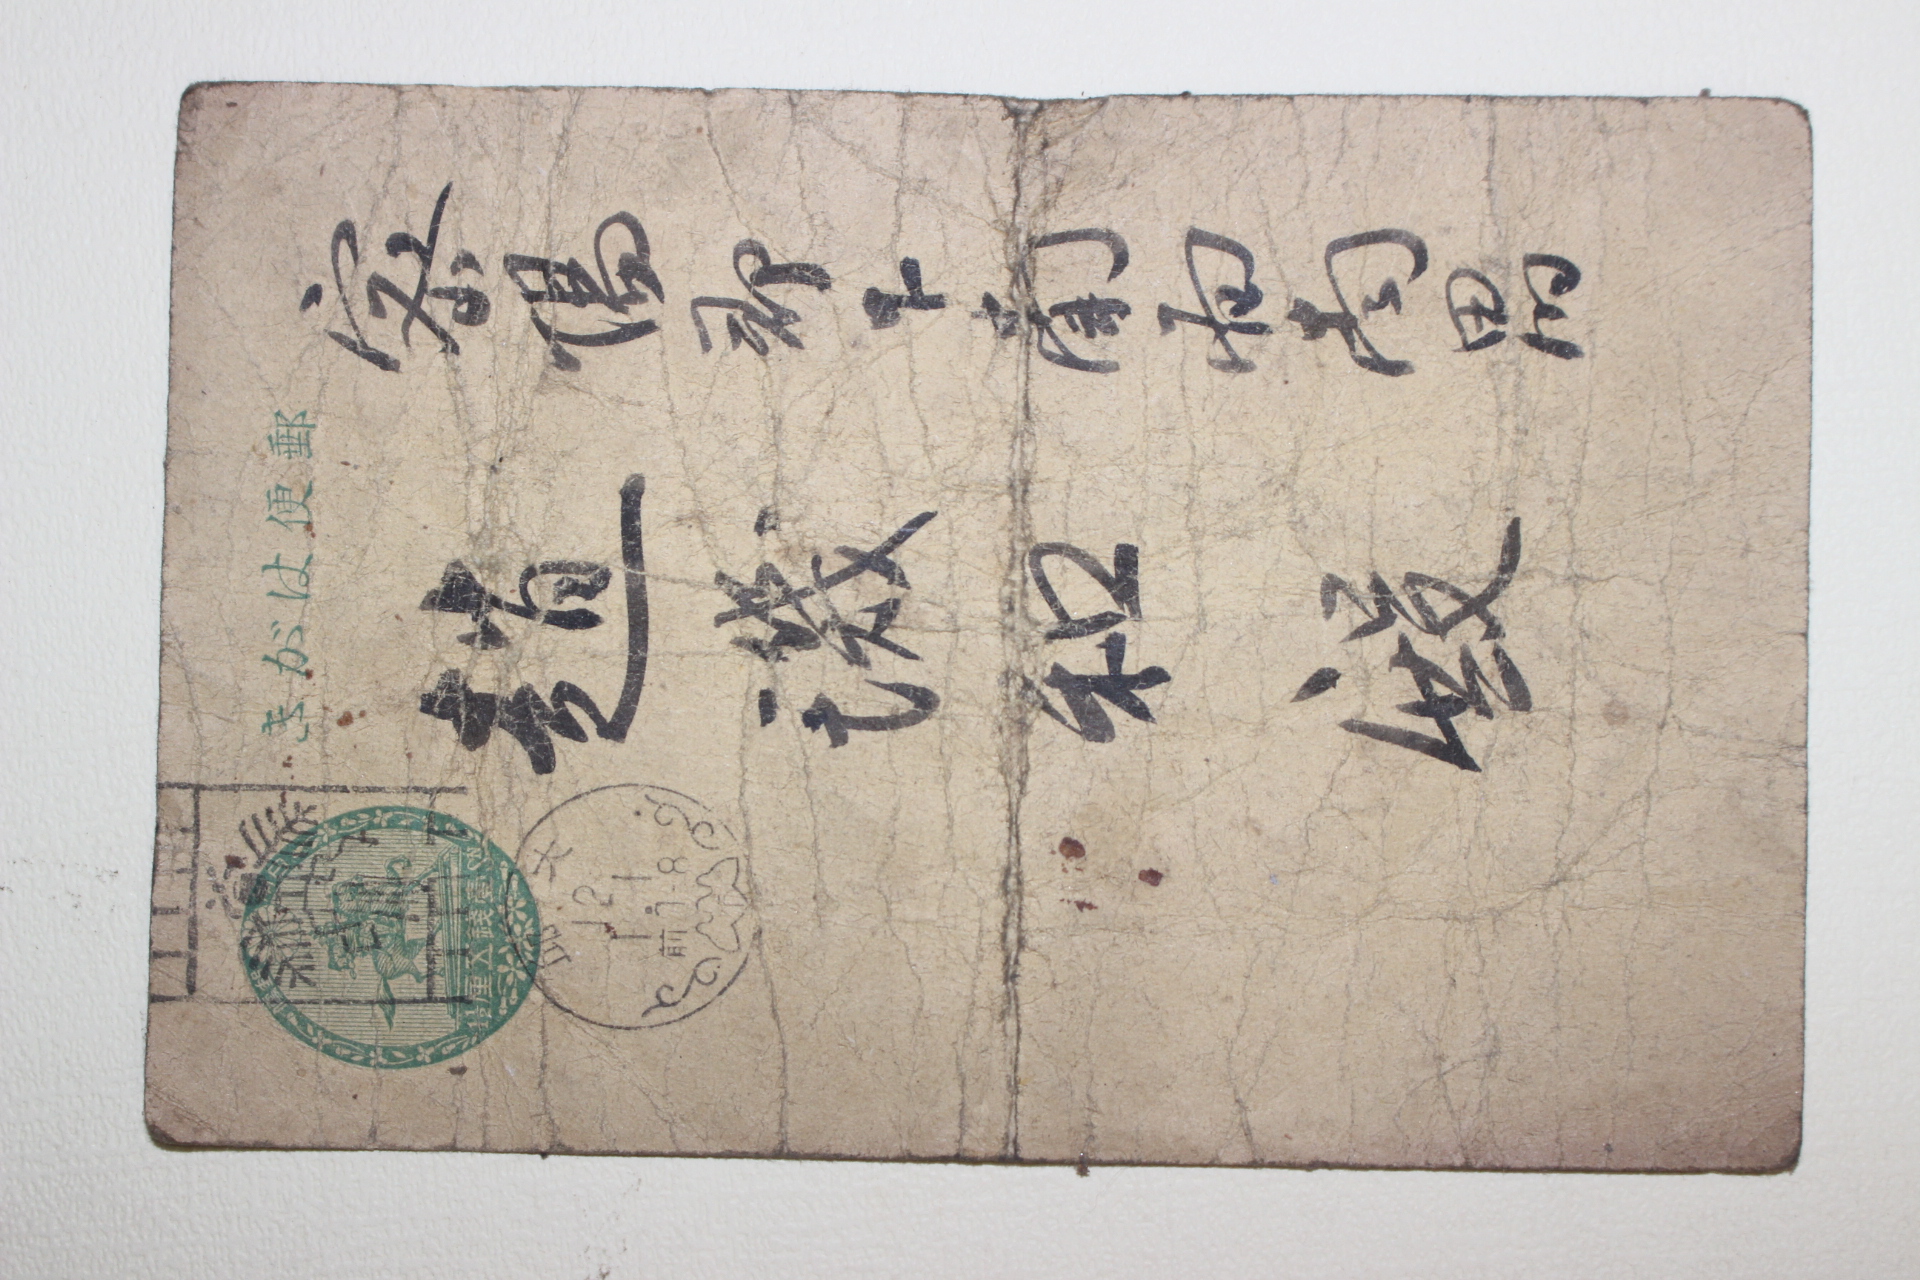 郵便はがき
密陽郡下南面南田
趙璣和殿
壹錢五厘
大邱
12
1.1
前7-8